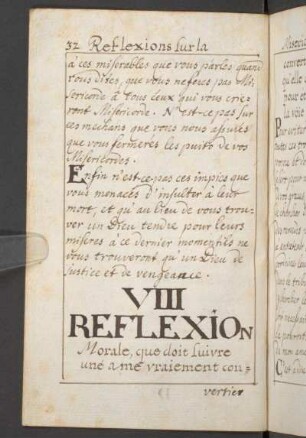 32 Reflexions sur la
à ces miserables que vous parlés quand
vous dites, que vous neferés pas Mi,
sericorde à tous ceux qui vous crie,
ront Misericorde. N'est-ce pas sur
ces mechans que vous nous assurés
que vous fermerés les puits de vos
Misericordes.
Enfin n'est-ce pas ces impies que
vous menacés d'insulter à leur
mort, et qu'au Lieu de vous trou,
ver un Dieu tendre pour leurs
miseres à ce dernier moment ils ne
vous trouveront qu'un Dieu de
Justice et de vengeance.
VIII
REFLEXION
Morale, que doit suivre
une ame vraiement con-
vertier